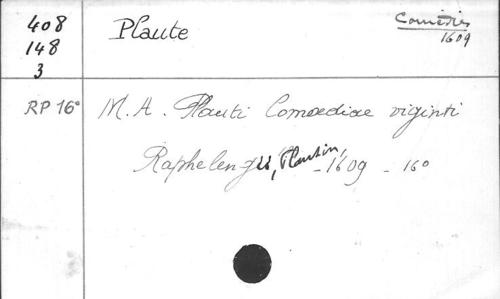 408
148
3
Plaute
Comédies
1609
RP 16°
M. A. Plauti Comoediae viginti
Raphelengii, Plantin, - 1609 - 16°